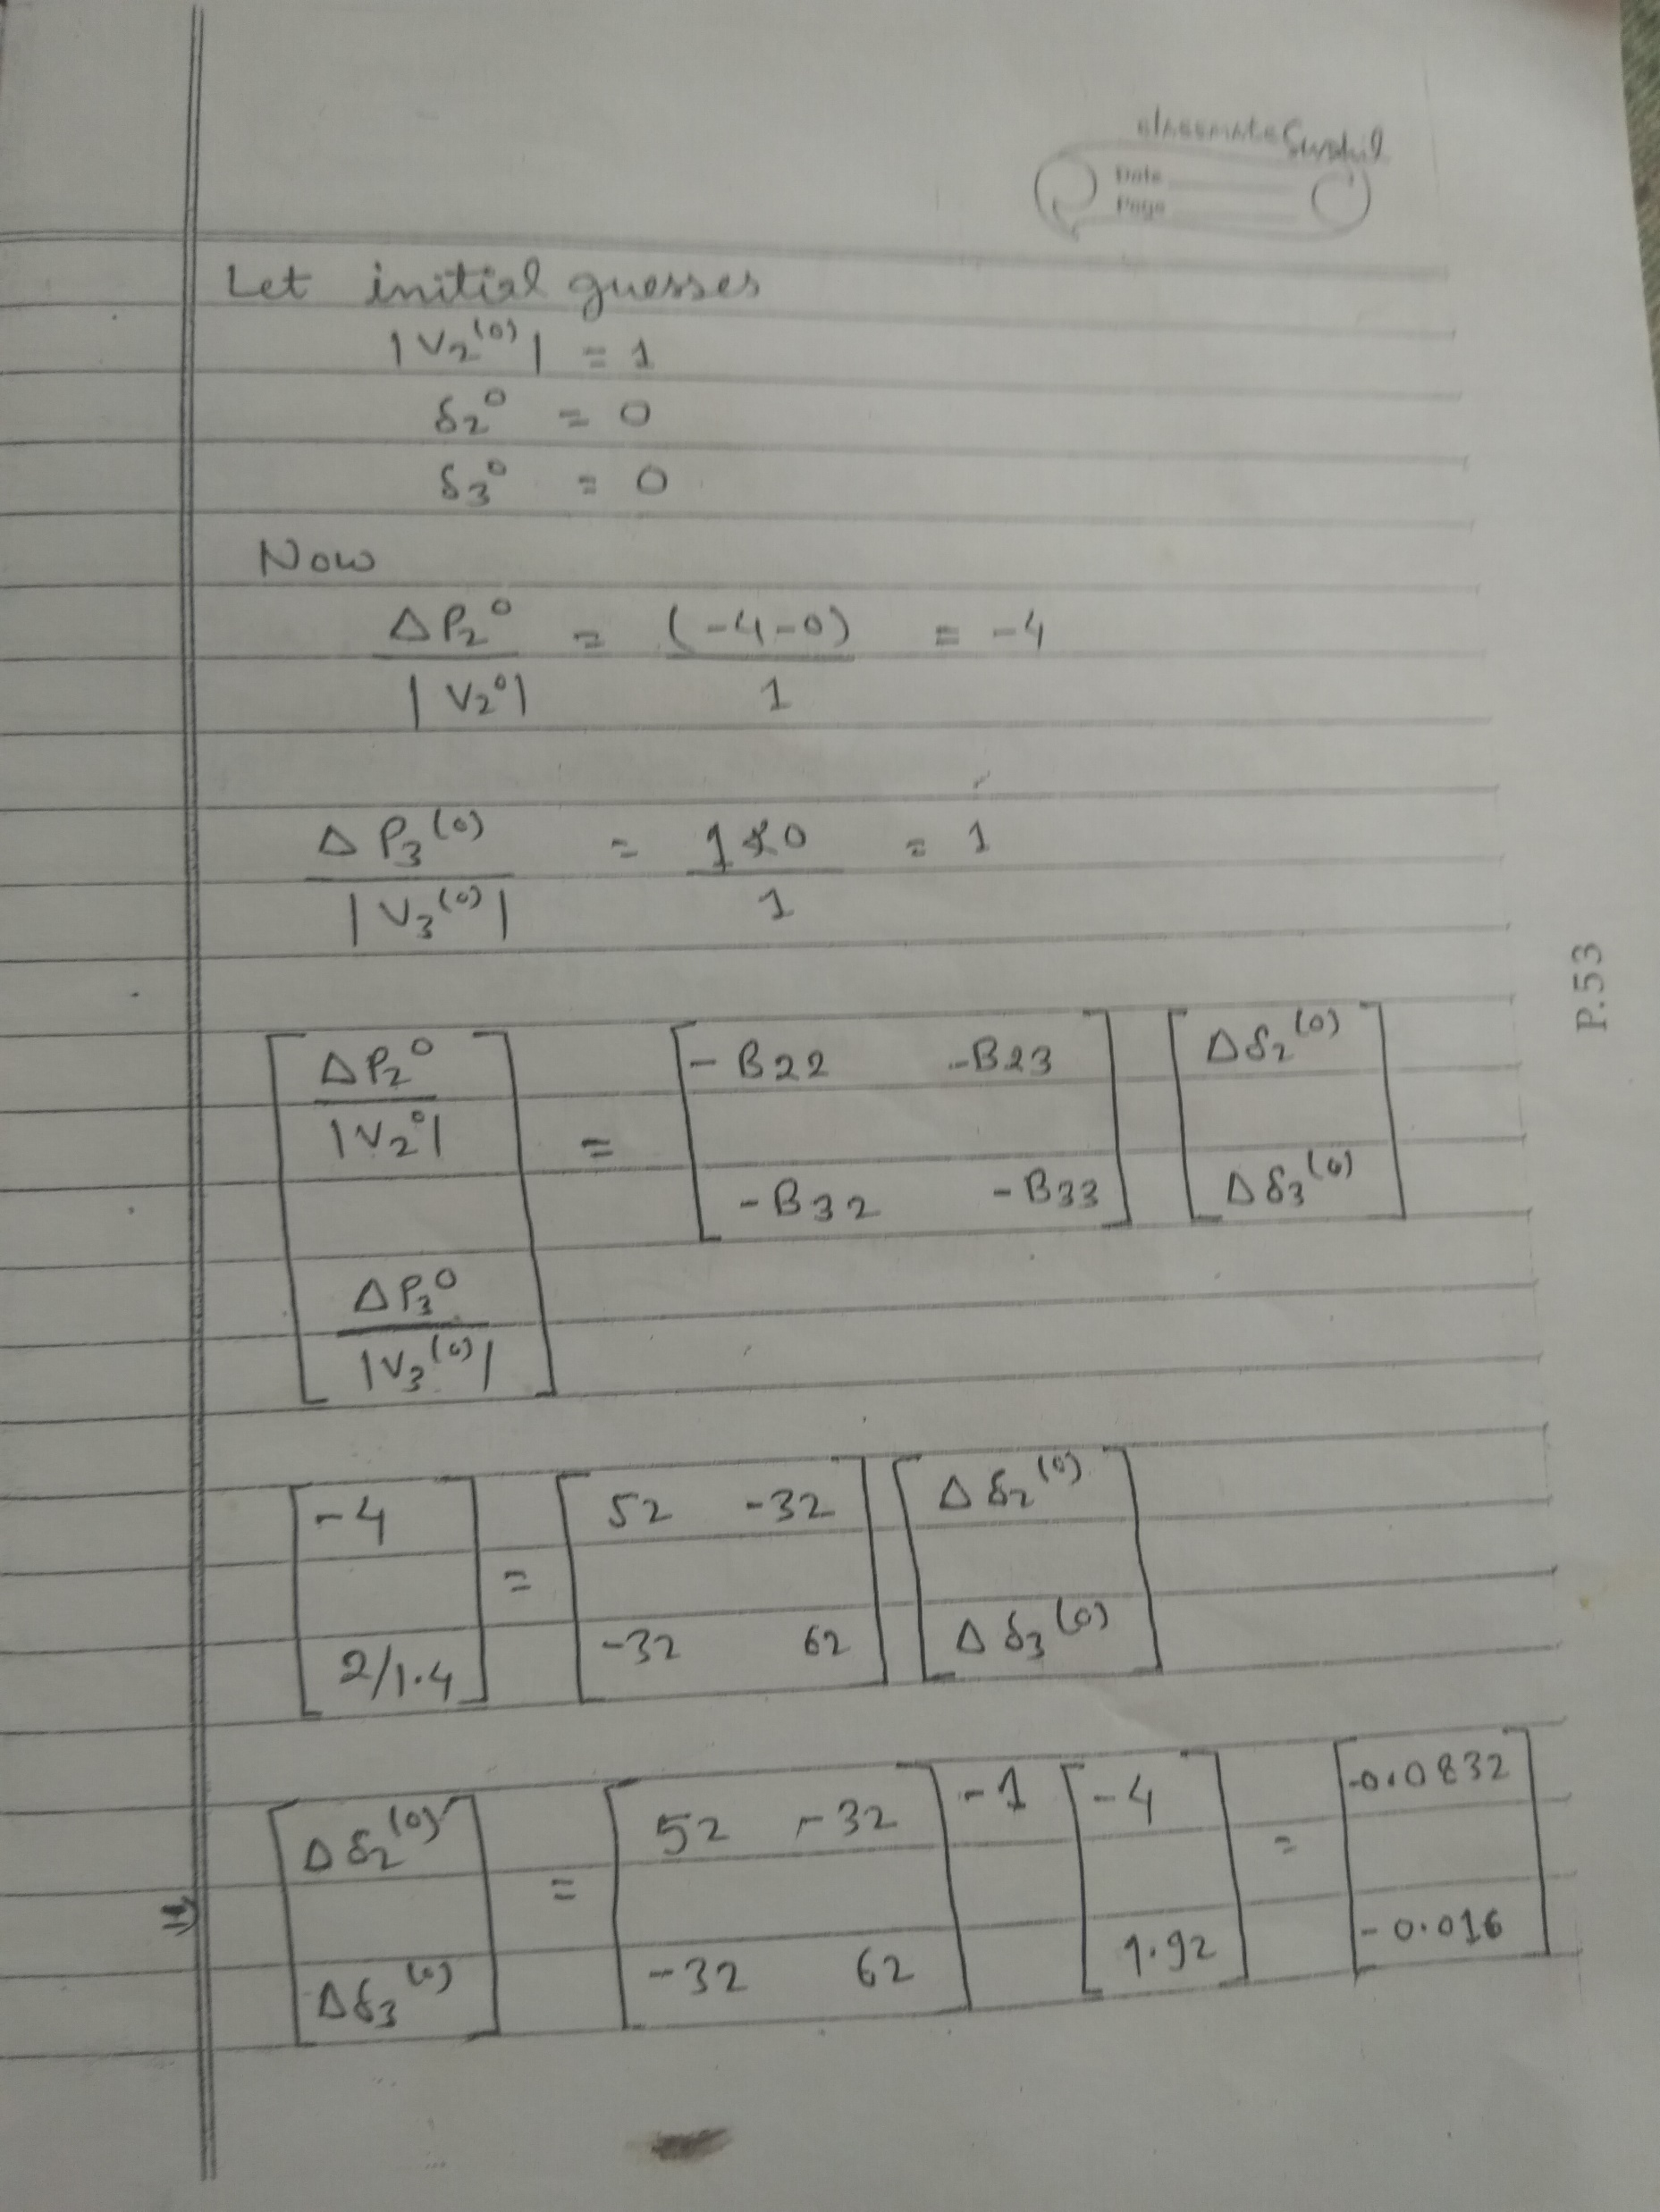 classmate Sushil
Date
Page
Let initial guesses
|V₂⁽⁰⁾| = 1
δ₂⁰ = 0
δ₃⁰ = 0
Now
ΔP₂⁰ / |V₂⁰| = (-4-0) / 1 = -4
ΔP₃⁽⁰⁾ / |V₃⁽⁰⁾| = 1 0 / 1 = 1
[ΔP₂⁰ / |V₂⁰| ; ΔP₃⁰ / |V₃⁽⁰⁾|] = [-B22 -B23 ; -B32 -B33] [Δδ₂⁽⁰⁾ ; Δδ₃⁽⁰⁾]
[-4 ; 2/1.4] = [52 -32 ; -32 62] [Δδ₂⁽⁰⁾ ; Δδ₃⁽⁰⁾]
[Δδ₂⁽⁰⁾ ; Δδ₃⁽⁰⁾] = [52 -32 ; -32 62]⁻¹ [-4 ; 1.92] = [-0.0832 ; -0.016]
P.53